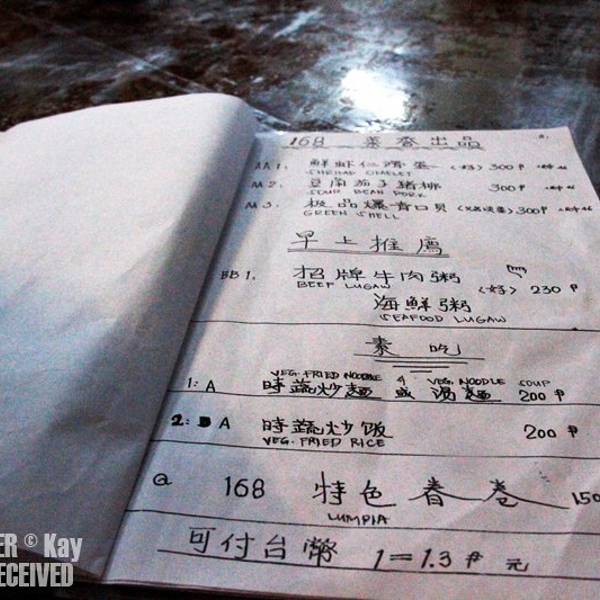 168 素香出品
AA 1. 鮮蝦仁滑蛋 (好) 300 ₱
SHRIMP OMELET
AA 2. 豆腐茄子豬排 300 ₱
SOUR BEAN PORK
AA 3. 极品爆青口贝 300 ₱
GREEN SHELL
早上推薦
BB 1. 招牌牛肉粥 (好) 230 ₱
BEEF LUGAW
海鮮粥
SEAFOOD LUGAW
素吃
VEG. FRIED NOODLE & VEG. NOODLE SOUP
1: A 時蔬炒麵 或 湯麵 200 ₱
2: A 時蔬炒饭 200 ₱
VEG. FRIED RICE
@ 168 特色春卷 150
LUMPIA
可付台幣 1=1.3 ₱ 元
ER © Kay
ECEIVED